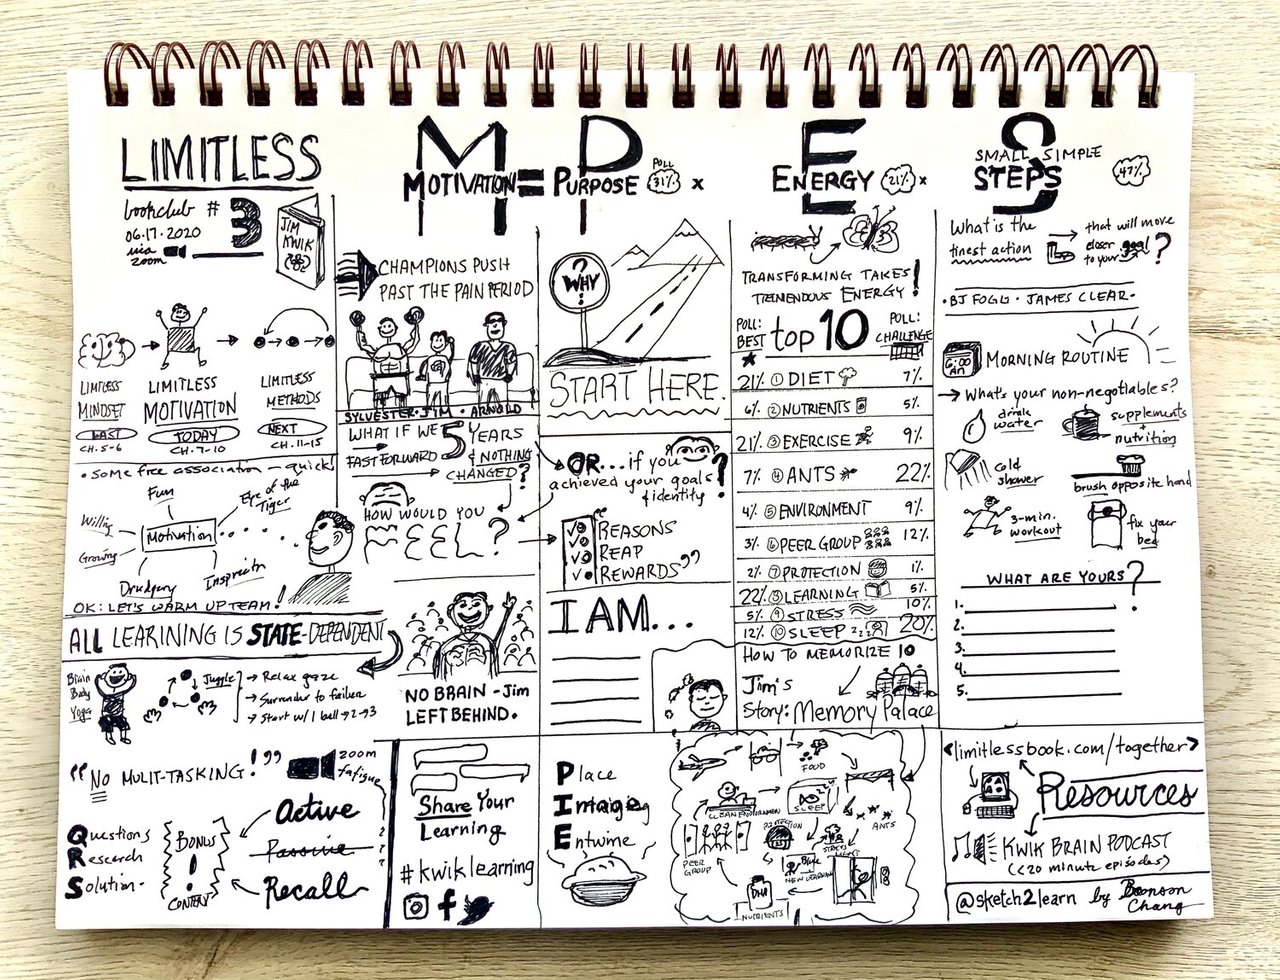 LIMITLESS
bookclub # 3
06.17.2020
via zoom
JIM KWIK
LIMITLESS MINDSET
LAST
CH. 5-6
LIMITLESS MOTIVATION
TODAY
CH. 7-10
LIMITLESS METHODS
NEXT
CH. 11-15
• some free association - quick!
Fun
Eye of the Tiger
Willing
Motivation
Growing
Drudgery
OK: LET'S WARM UP TEAM!
ALL LEARINING IS STATE-DEPENDENT
Brain Body Yoga
Juggle
→ Relax gaze
→ Surrender to failure
→ Start w/ 1 ball → 2 → 3
"NO MULIT-TASKING!"
zoom fatigue
Questions
Research
Solution.
BONUS ! CONTENT
Active
Passive
Recall
M
MOTIVATION = PURPOSE
P
POLL 31%
x
E
ENERGY
21%
x
S
SMALL SIMPLE
STEPS
47%
CHAMPIONS PUSH
PAST THE PAIN PERIOD
SYLVESTER • JIM • ARNOLD
WHAT IF WE
FAST FORWARD 5 YEARS
& NOTHING CHANGED?
HOW WOULD YOU
?
NO BRAIN - Jim
LEFT BEHIND.
Share Your
Learning
#kwiklearning
? WHY!
START HERE.
OR... if you
achieved your goals
& identity ?
"REASONS
REAP
REWARDS"
I AM...
Place
Imaging
Entwine
TRANSFORMING TAKES
TREMENDOUS ENERGY!
POLL: BEST
top 10
POLL: CHALLENGE
21% ① DIET 7%
6% ② NUTRIENTS 5%
21% ③ EXERCISE 9%
7% ④ ANTS 22%
4% ⑤ ENVIRONMENT 9%
3% ⑥ PEER GROUP 12%
2% ⑦ PROTECTION 1%
22% ⑧ LEARNING 5%
5% ⑨ STRESS 10%
12% ⑩ SLEEP zzz 20%
HOW TO MEMORIZE 10
Jim's
Story: Memory Palace
FOOD
CLEAN ENVIRONMENT
SLEEP
ANTS
PEER GROUP
PROTECTION
NEW LEARNING
DHA
NUTRIENTS
What is the
tinest action
that will move
closer to your goal ?
• BJ FOGG • JAMES CLEAR •
6:00 AM
MORNING ROUTINE
→ What's your non-negotiables?
drink water
supplements + nutrition
cold shower
brush opposite hand
3-min. workout
fix your bed
WHAT ARE YOURS?
1.
2.
3.
4.
5.
<limitlessbook.com/together>
Resources
KWIK BRAIN PODCAST
(<20 minute episodes)
@sketch2learn by Boonson Chang